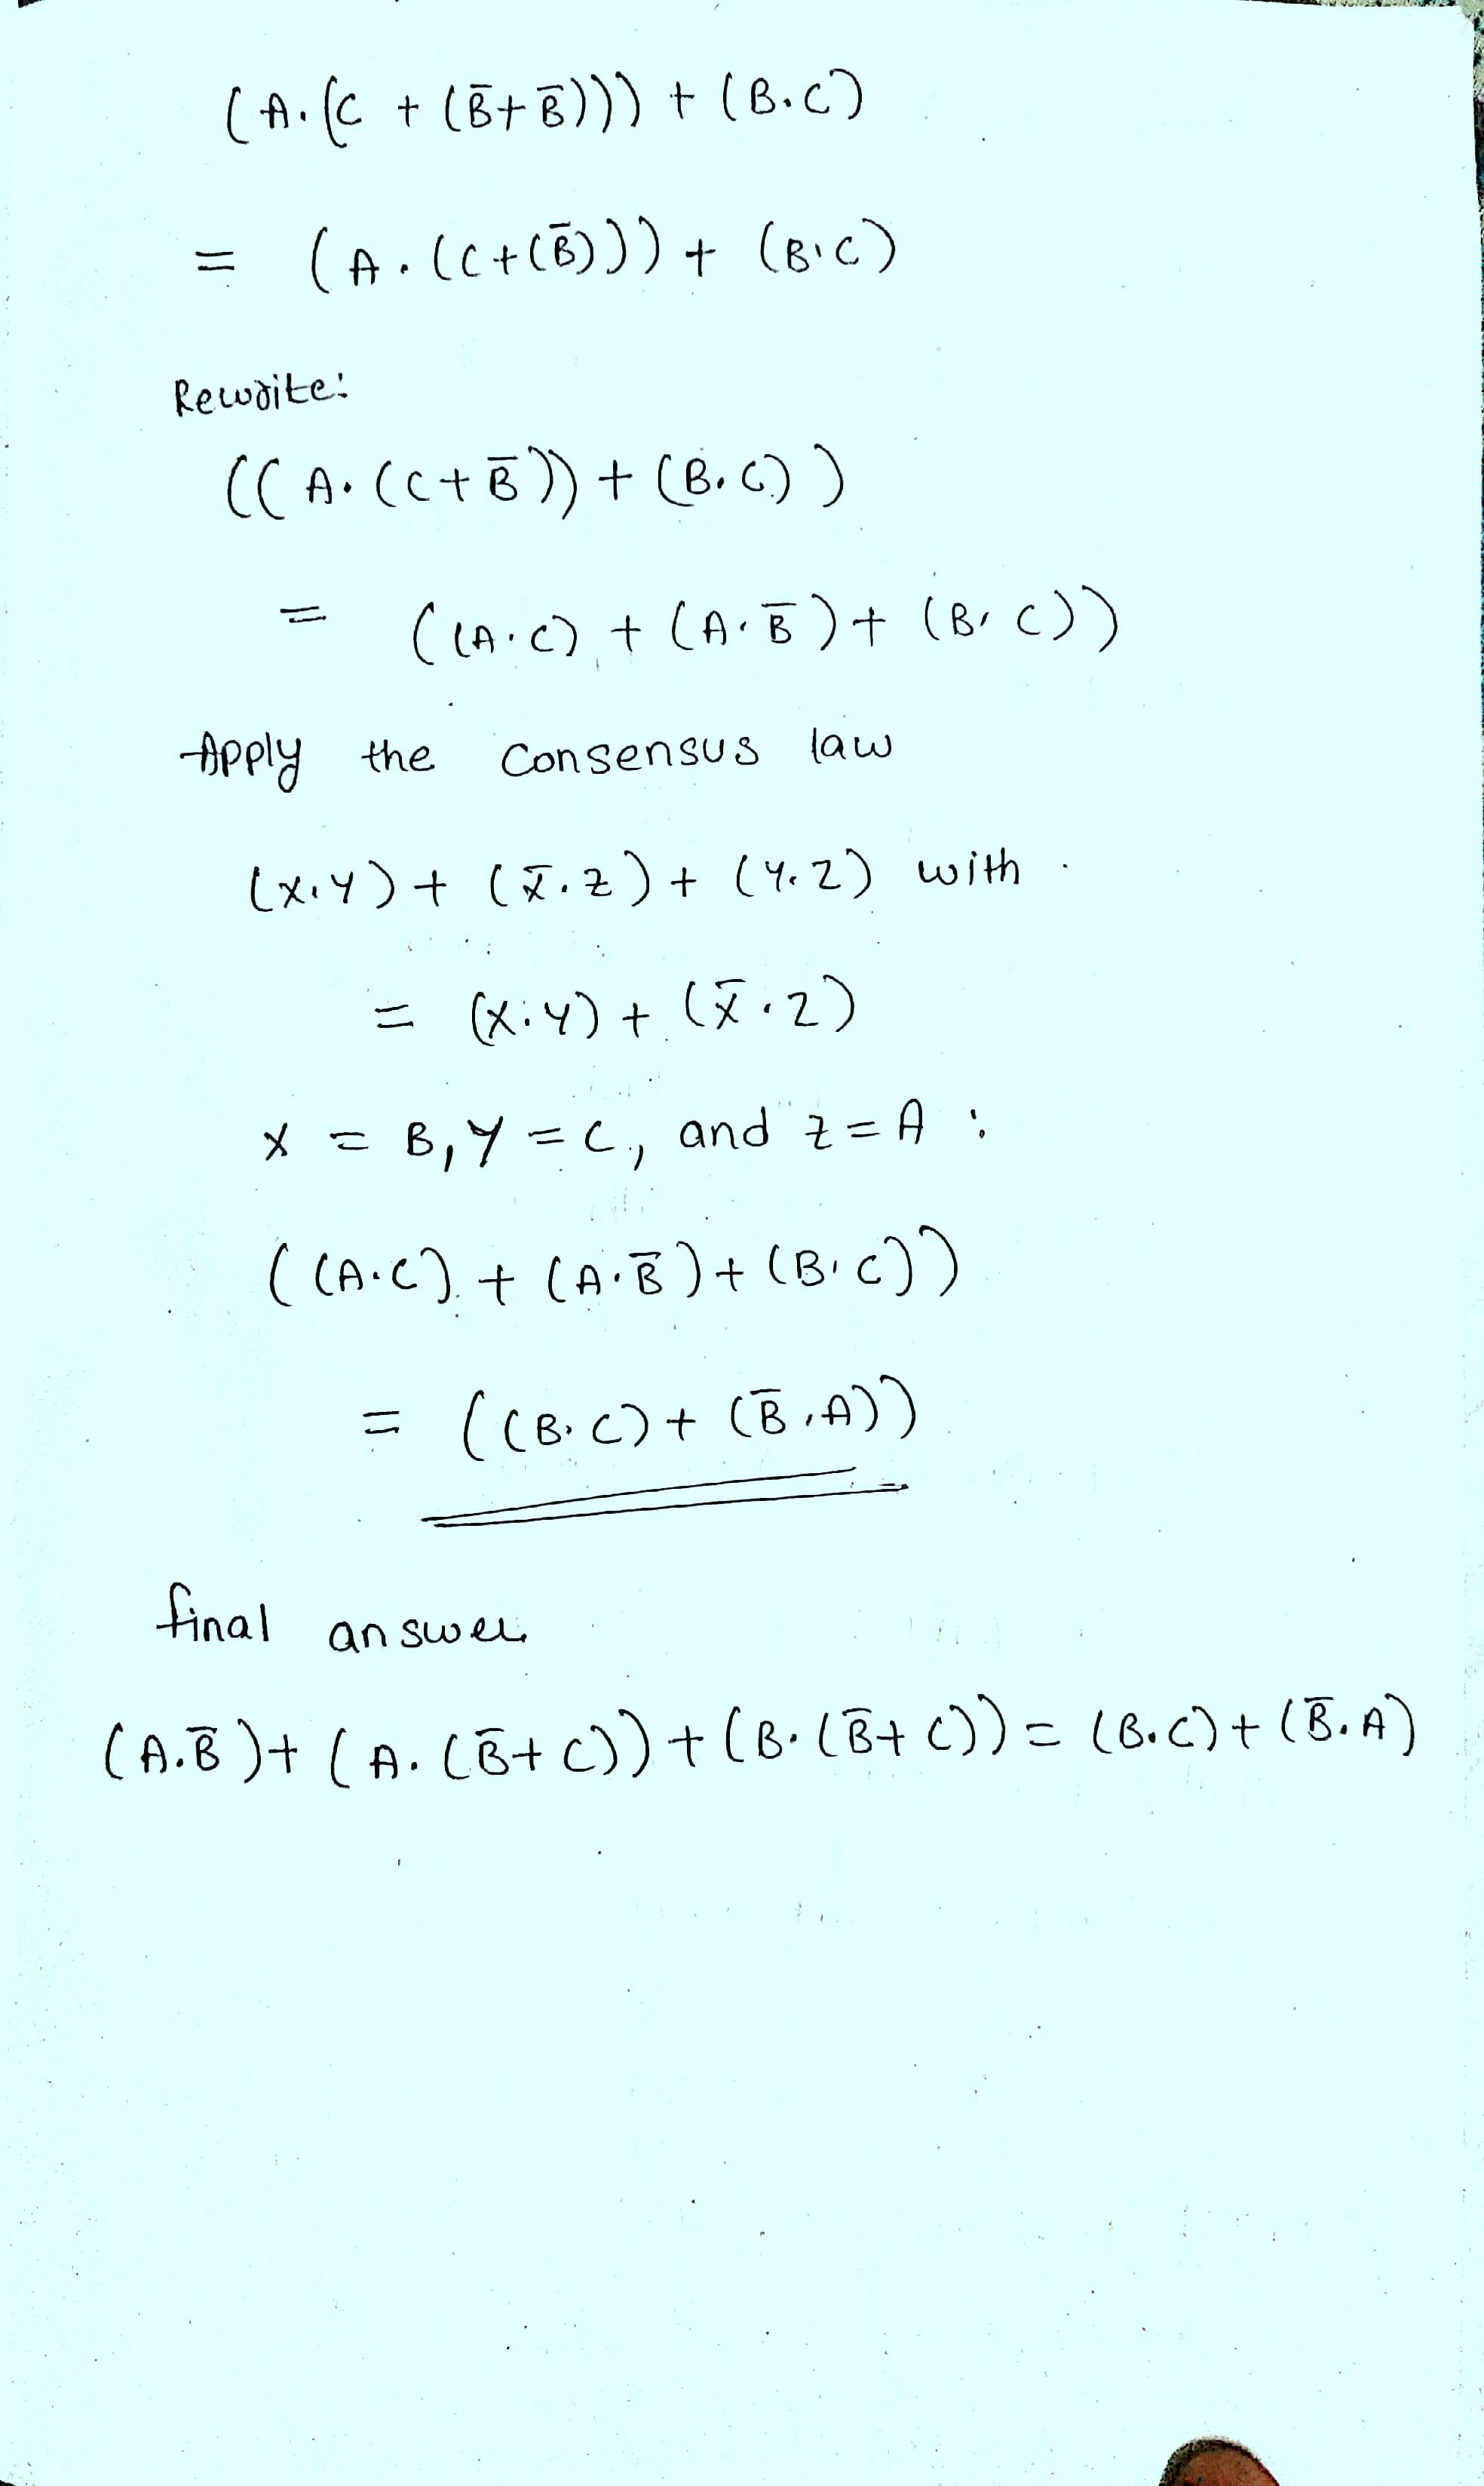 (A.(C + (B̅+B̅))) + (B.C)
= (A.(C+(B̅))) + (B.C)
Rewrite:
((A.(C+B̅)) + (B.C))
= ((A.C) + (A.B̅) + (B.C))
Apply the consensus law
(X.Y) + (X̅.Z) + (Y.Z) with
= (X.Y) + (X̅.Z)
X = B, Y = C, and Z = A :
((A.C) + (A.B̅) + (B.C))
= ((B.C) + (B̅.A))
final answer
(A.B̅) + (A.(B̅+C)) + (B.(B̅+C)) = (B.C) + (B̅.A)